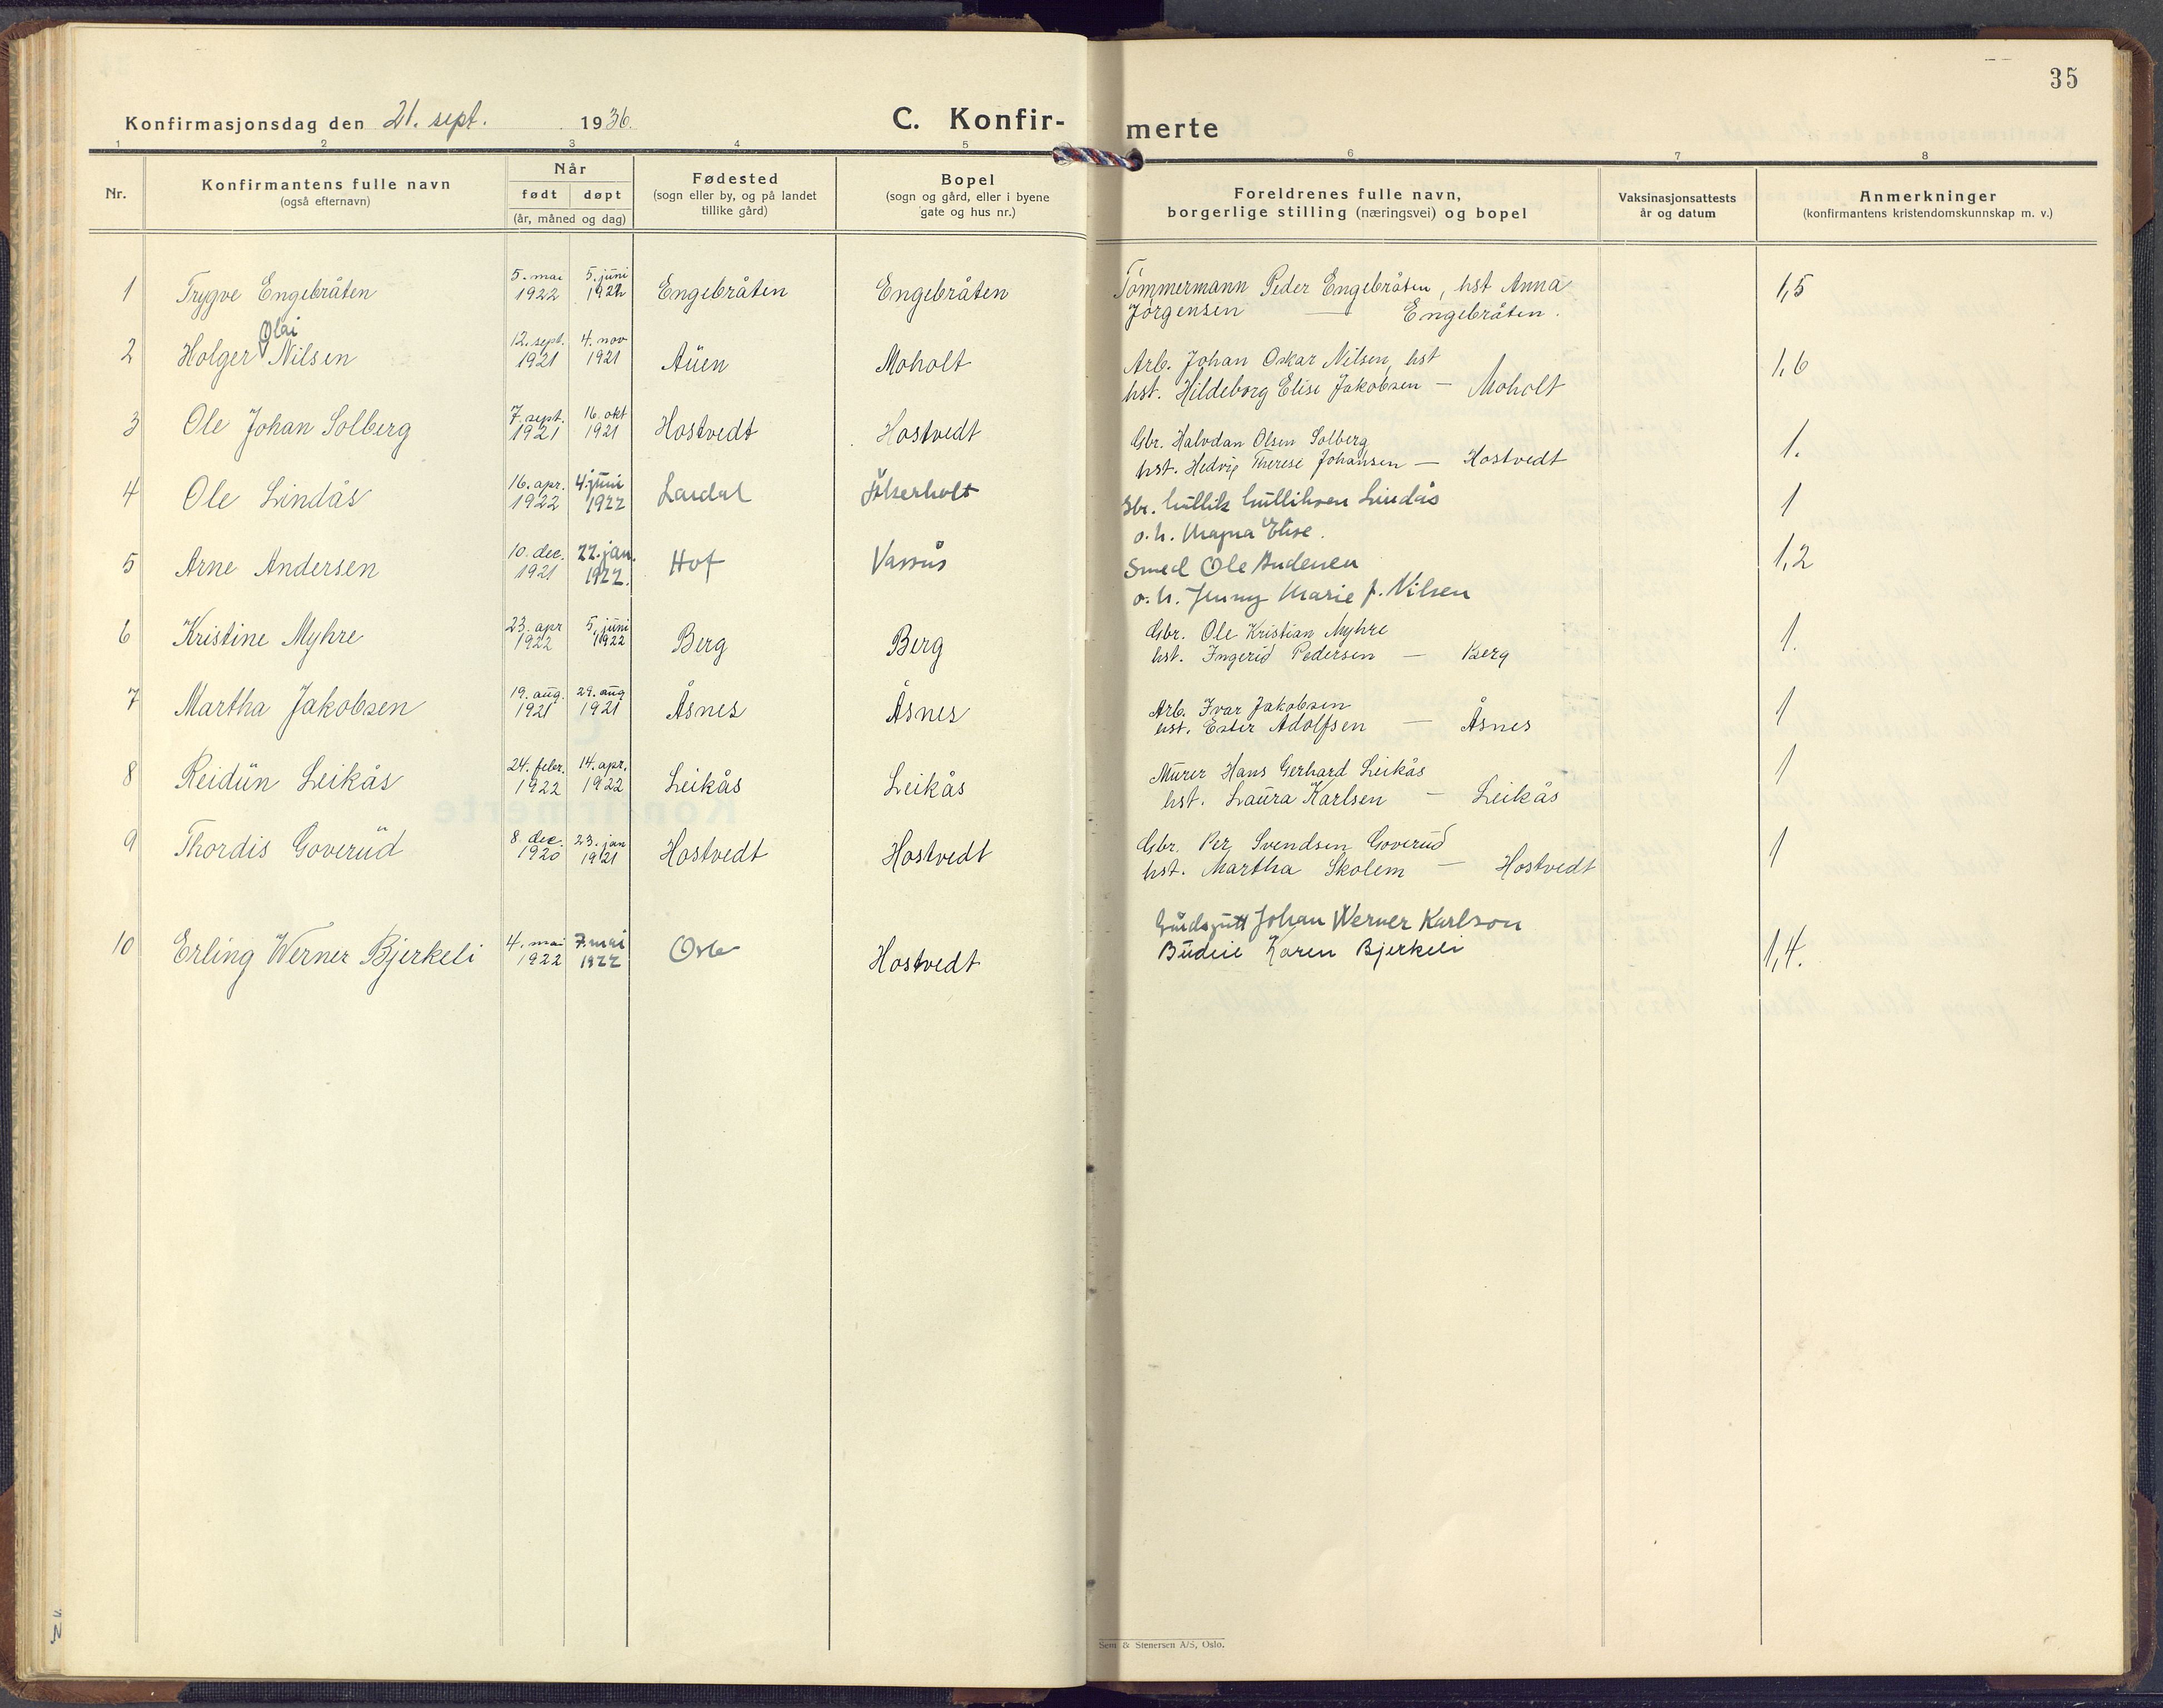 35
Konfirmasjonsdag den 21. sept. 1936.
C. Konfir-
merte
1 2 3 4 5 6 7 8
Nr.
Konfirmantens fulle navn
(også efternavn)
Når
født døpt
(år, måned og dag)
Fødested
(sogn eller by, og på landet
tillike gård)
Bopel
(sogn og gård, eller i byene
gate og hus nr.)
Foreldrenes fulle navn,
borgerlige stilling (næringsvei) og bopel
Vaksinasjonsattests
år og datum
Anmerkninger
(konfirmantens kristendomskunnskap m. v.)
5. mai 5. jüni Tömmermann Peder Engebråten, hst Anna
1 Trygve Engebråten 1922 1922 Engebråten Engebråten 1,5
Jörgensen — Engebråten.
Olai
12. sept. 4. nov Arb. Johan Oskar Nilsen, hst
2 Holger Nilsen 1921 1921 Aüen Moholt 1,6
hst. Hildeborg Elise Jakobsen — Moholt
7. sept. 16. okt Gbr. Halvdan Olsen Solberg
3 Ole Johan Solberg 1921 1921 Hostvedt Hostvedt 1.
hst. Hedvig Therese Johansen — Hostvedt
16. apr. 4. jüni Gbr. Güllik Gülliksen Lindås
4 Ole Lindås 1922 1922 Lardal 1
o. h. Magna Elise.
10. dec. 22. jan. Smed Ole Andersen
5 Arne Andersen 1921 1922. Hof Vassås 1,2
o. h. Jenny Marie f. Nilsen
23. apr 5. jüni Gbr. Ole Kristian Myhre
6 Kristine Myhre 1922 1922 Berg Berg 1.
hst. Ingerid Pedersen — Berg
19. aüg. 29. aüg Arb. Ivar Jakobsen
7 Martha Jakobsen 1921 1921 Åsnes Åsnes 1
hst. Ester Adolfsen — Åsnes
24. febr. 14. apr. Mürer Hans Gerhard Leikås
8 Reidün Leikås 1922 1922 Leikås Leikås 1
hst. Laüra Karlsen — Leikås
8. dec. 23. jan Gbr. Per Svendsen Goverüd
9 Thordis Goverüd 1920 1921 Hostvedt Hostvedt 1
hst. Martha Skolem — Hostvedt
Gårdsgütt Johan Werner Karlson
4. mai 7. mai Büdeie Karen Bjerkeli
10 Erling Werner Bjerkeli 1922 1922 Oslo Hostvedt 1,4.
Sem & Stenersen A/S, Oslo.